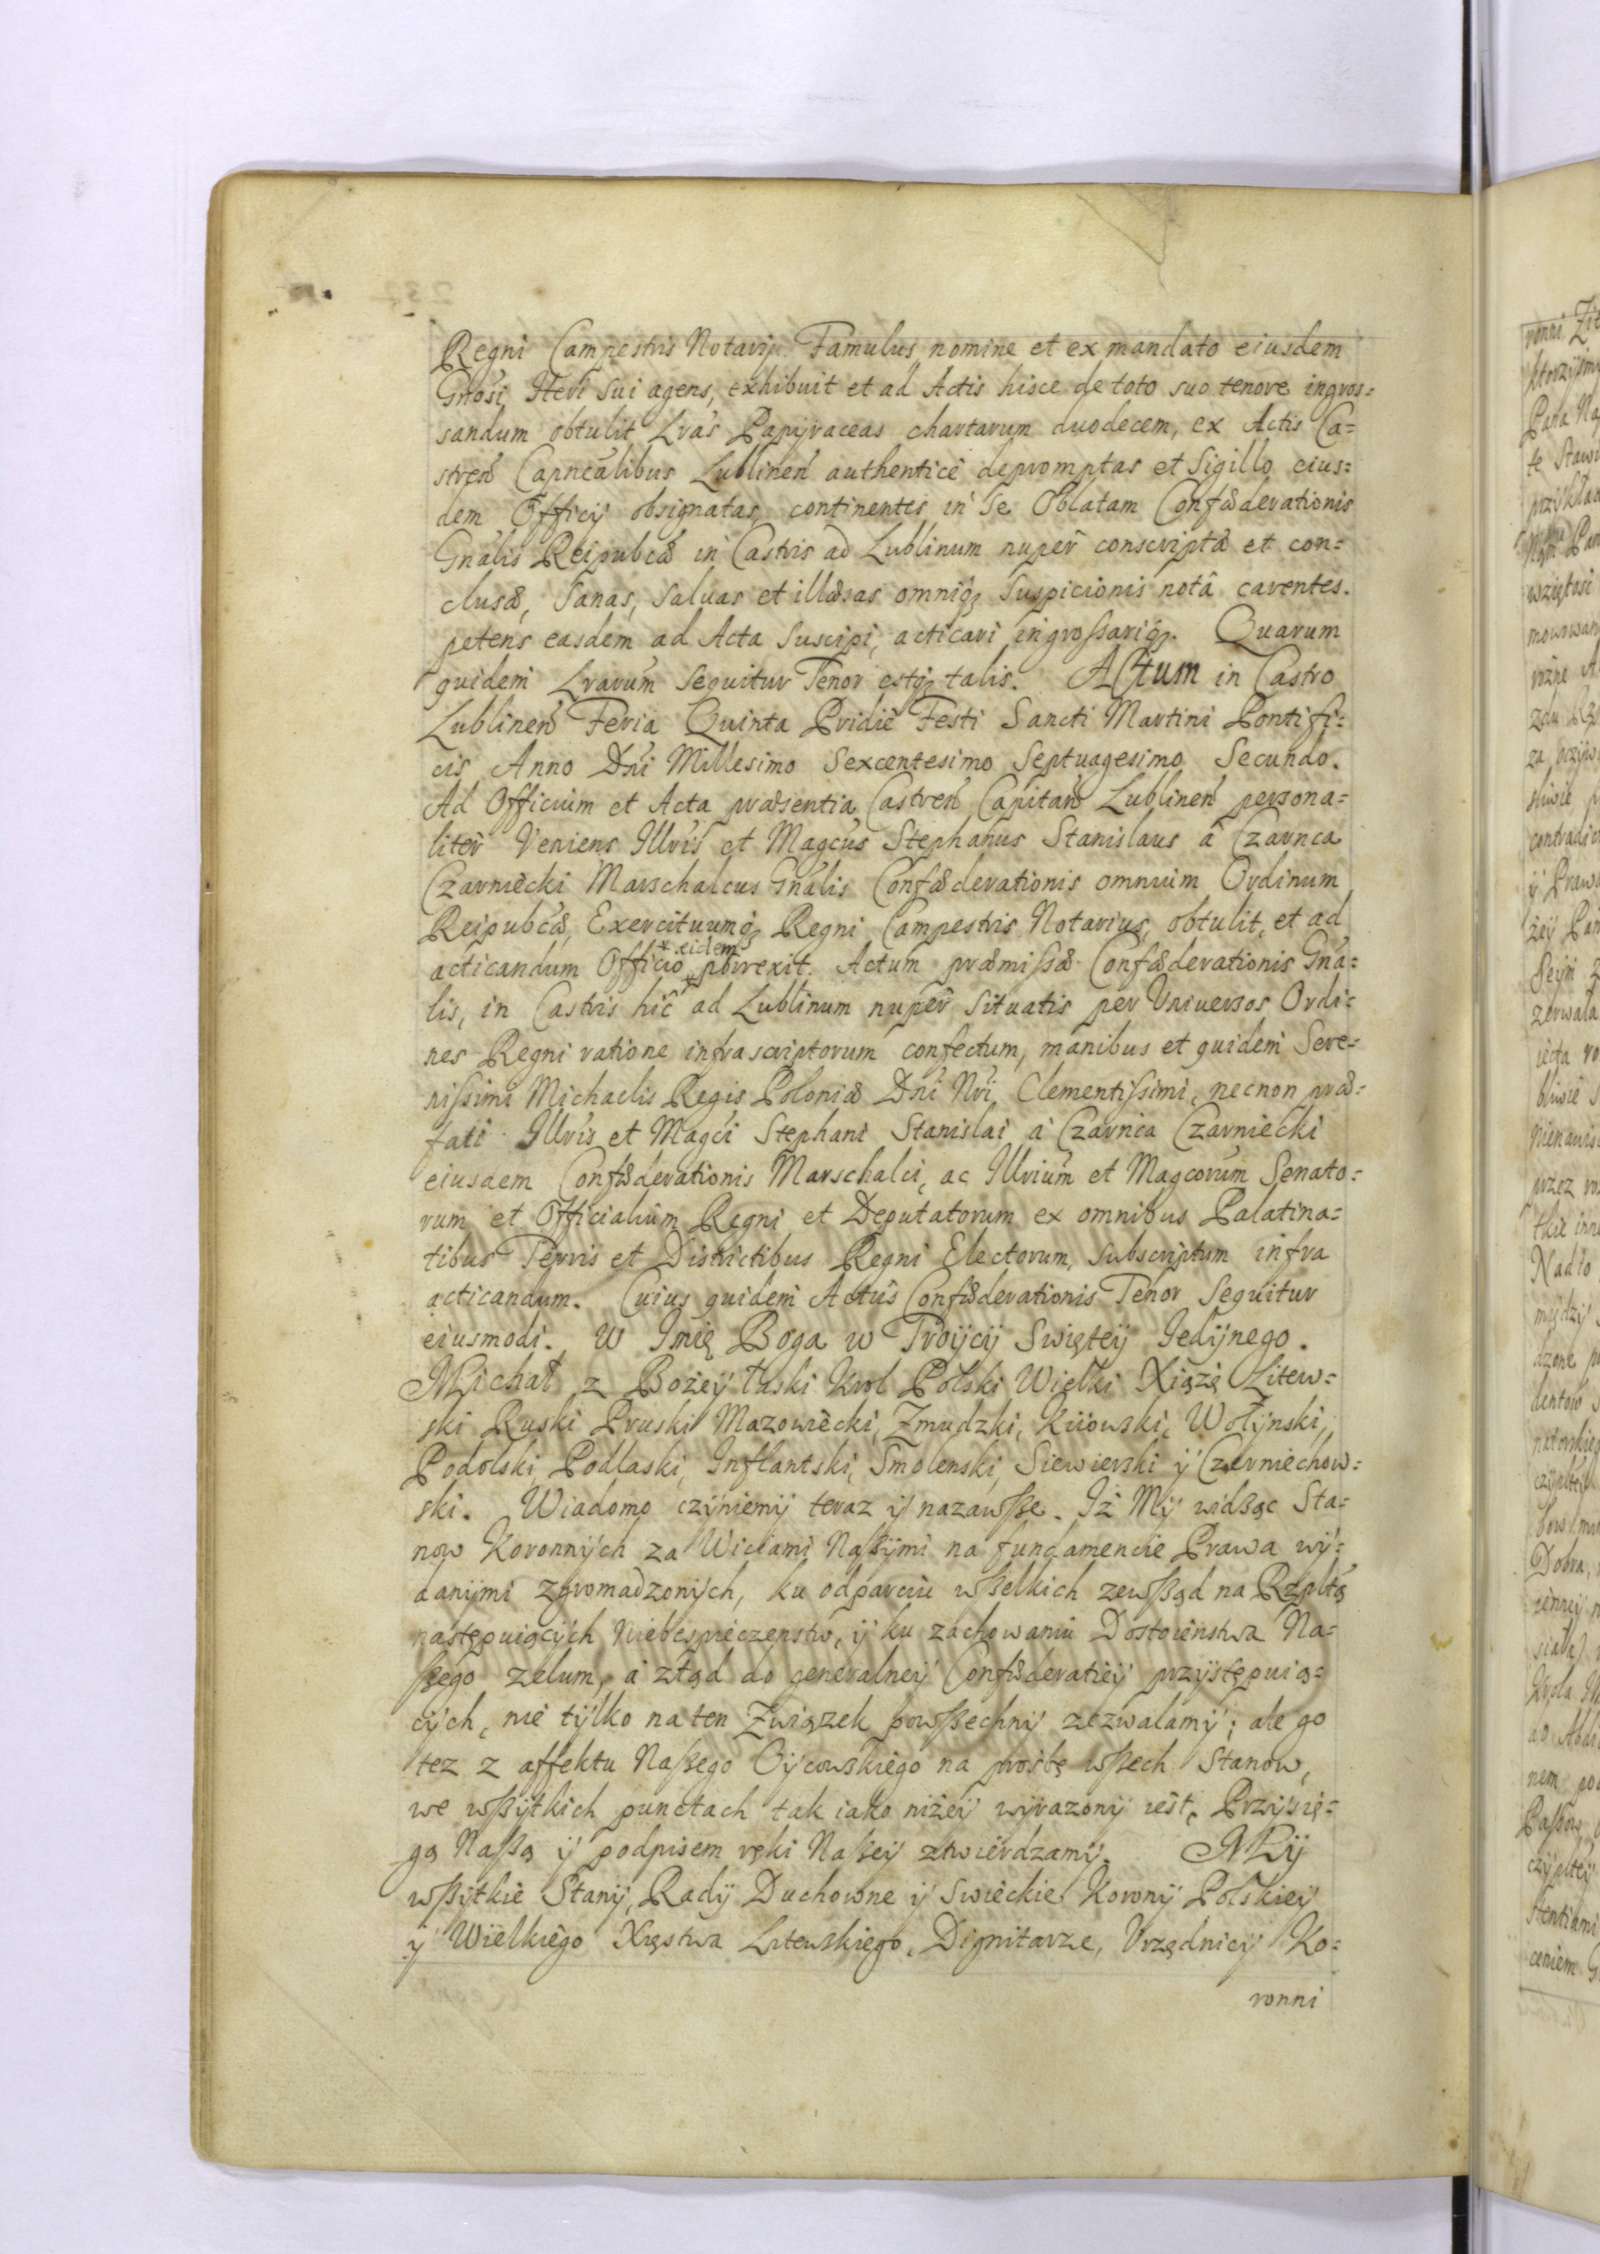 Regni Campestris Notarij Famulus nomine et ex mandato eiusdem
Gnosi Heri sui agens, exhibuit et ad Actis hisce de toto suo tenore ingros=
sandum obtulit Lras Papyraceas chartarum duodecem, ex Actis Ca=
stren Capnealibus Lublinen authenticè depromptas et Sigillo eius=
dem Officij obsignatas, continentes in se Oblatam Confæderationis
Gnalis Reipubcæ in Castris ad Lublinum nuper conscriptæ et con=
clusæ, Sanas, Saluas et illæsas omniq; Suspicionis notâ carentes.
petens easdem ad Acta Suscipi, acticari ingroßariq;. Quarum
quidem Lrarum Sequitur Tenor estq; talis. ACtum in Castro
Lublinen Feria Quinta Pridie Festi Sancti Martini Pontifi=
cis Anno Dni Millesimo Sexcentesimo Septuagesimo Secundo.
Ad Officium et Acta præsentia Castren Capitan Lublinen persona=
liter Veniens Illris et Magcus Stephanus Stanislaus à Czarnca
Czarniecki Marschalcus Gnalis Confæderationis omnium Ordinum
Reipubcæ, Exercituumq; Regni Campestris Notarius, obtulit, et ad
acticandum Officio *eidem porrexit. Actum præmißæ Confæderationis Gna=
lis, in Castris hic ad Lublinum nuper situatis per Vniuersos Ordi=
nes Regni ratione infrascriptorum confectum, manibus et quidem Sere=
nißimi Michaelis Regis Poloniæ Dni Nri Clementißimi, necnon præ=
fati Illris et Magci Stephani Stanislai à Czarnca Czarniecki
eiusdem Confæderationis Marschalci, ac Illrium et Magcorum Senato=
rum et Officialium Regni et Deputatorum ex omnibus Palatina=
tibus Terris et Districtibus Regni Electorum, subscriptum infra
acticandum. Cuius quidem Actûs Confæderationis Tenor Sequitur
eiusmodi. W Imię Boga w Troÿcÿ Swięteÿ Iedÿnego.
Michał z Bożeÿ łaski Krol Polski Wielki Xiąże Litew=
ski Ruski Pruski Mazowiecki, Zmudzki, Kiiowski, Wołÿnski,
Podolski Podlaski, Inflantski, Smolenski, Siewierski ÿ Czerniechow=
ski. Wiadomo czÿniemÿ teraz ÿ nazawße. Iż Mÿ widząc Sta=
now Koronnÿch za Wiciami Naßÿmi na fundamencie Prawa wÿ=
danÿmi zgromadzonÿch, ku odparciu wßelkich zewßąd na Rzpltą
następuiącÿch niebespieczenstw, ÿ ku zachowaniu Dostoienstwa Na=
ßego zelum, a ztąd do generalneÿ Confæderatieÿ przÿstępuią=
cÿch, nie tÿlko na ten Związek powßechnÿ zezwalamÿ; ale go
tez z affektu Naßego Oÿcowskiego na prośbę wßech Stanow,
we wßÿtkich punctach tak iako niżeÿ wÿrazonÿ iest, Przÿsię=
gą Naßą ÿ podpisem ręki Naßeÿ ztwierdzamÿ. MÿY
wßÿtkie Stanÿ, Radÿ Duchowne ÿ Swieckie Koronÿ Polskieÿ
ÿ Wielkiego Xięstwa Litewskiego, Dignitarze, Vrzędnicÿ Ko=
ronni